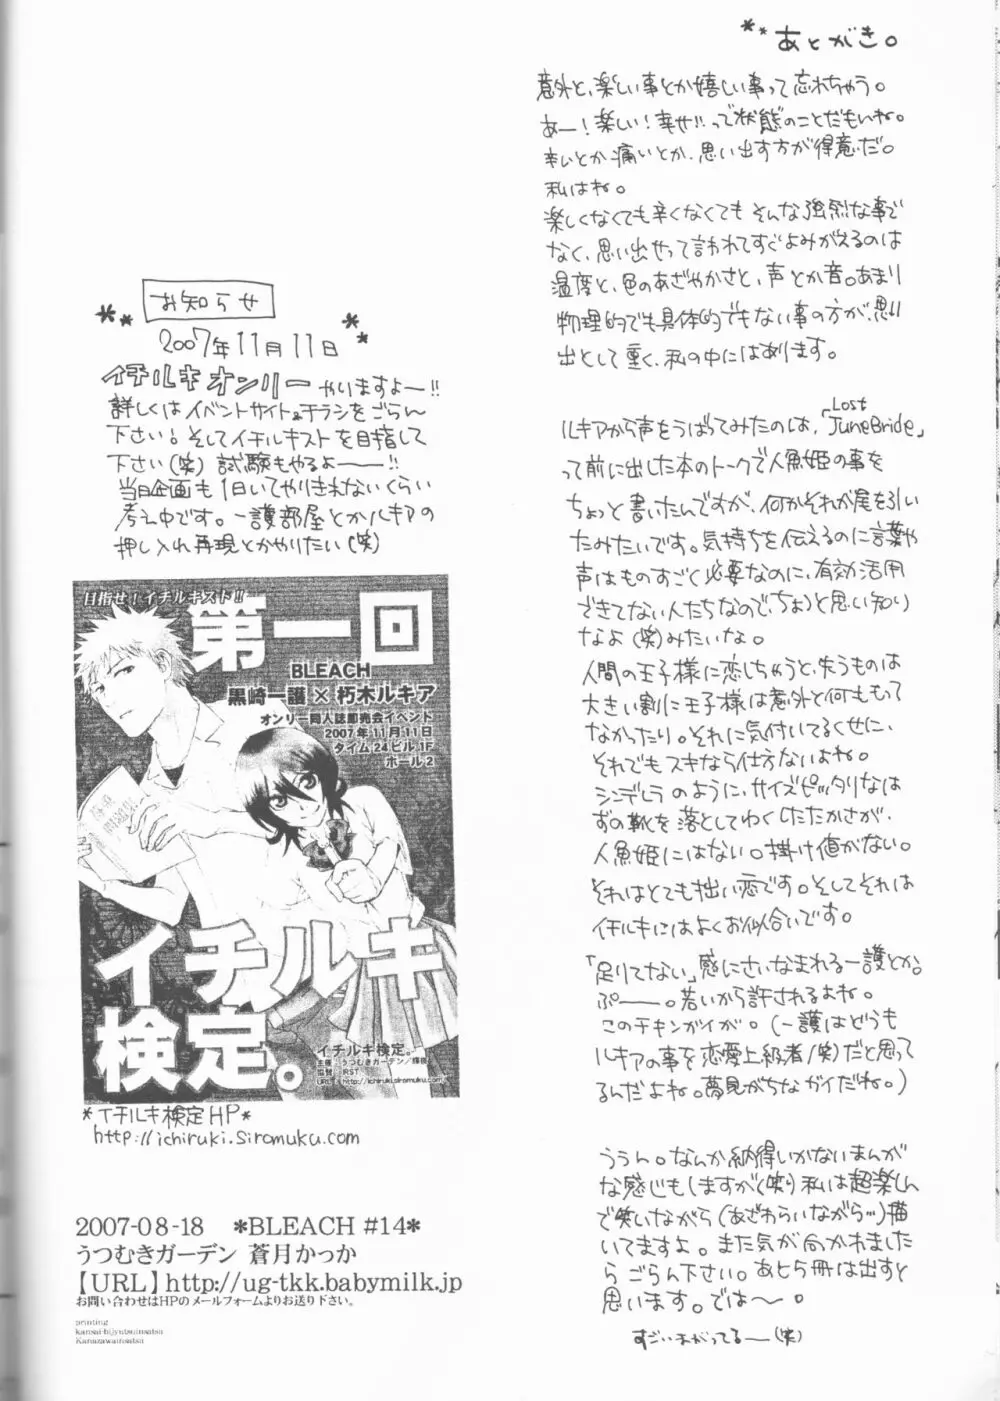 **あとがき。
意外と、楽しい事とか嬉しい事って忘れちゃう。
あー！楽しい！幸せ!!って状態のことだもいね。
辛いとか痛いとか、思い出す方が得意だ。
私はね。
楽しくなくても辛くなくても そんな強烈な事で
なく、思い出せって言われてすぐよみがえるのは
温度と、色のあざやかさと、声とか音。あまり
物理的でも具体的でもない事の方が、思い
出として重く、私の中にはあります。
ルキアから声をうばってみたのは、「Lost JuneBride」
って前に出した本のトークで人魚姫の事を
ちょっと書いたんですが、何かそれが尾を引い
たみたいです。気持ちを伝えるのに言葉や
声はものすごく必要なのに、有効活用
できてない人たちなので、ちょっと思い知り
なよ(笑)みたいな。
人間の王子様に恋しちゃうと、失うものは
大きい割に王子様は意外と何ももって
なかったり。それに気付いてるくせに、
それでもスキなら仕方ないよね。
シンデレラのように、サイズピッタリなは
ずの靴を落としてゆくしたたかさが、
人魚姫にはない。掛け値がない。
それはとても拙い恋です。そしてそれは
イチルキにはよくお似合いです。
「足りてない」感にさいなまれる一護とか。
ぷーー。若いから許されるよね。
このチキンガイが。(一護はどうも
ルキアの事を恋愛上級者(笑)だと思って
るんだよね。夢見がちなガイだね。)
ううん。なんか納得いかないまんが
な感じもしますが(笑)私は超楽しん
で笑いながら(あざわらいながら…)描
いてますよ。また気が向かれました
らごらん下さい。あと5冊は出すと
思います。では〜。
すごいまがってるー(笑)
お知らせ
2007年11月11日
イチルキオンリーやりますよー!!
詳しくはイベントサイト&チラシをごらん
下さい！そしてイチルキストを目指して
下さい(笑) 試験もやるよーー!!
当日企画も1日いてやりきれないくらい
考え中です。一護部屋とかルキアの
押し入れ再現とかやりたい(笑)
目指せ！イチルキスト!!
第一回
BLEACH
黒崎一護×朽木ルキア
オンリー同人誌即売会イベント
2007年11月11日
タイム24ビル1F
ホール2
問題集
イチルキ
検定。
イチルキ検定。
主催 うつむきガーデン／輝夜
協賛 RST
URL http://ichiruki.siromuku.com/
*イチルキ検定HP*
http://ichiruki.siromuku.com
2007-08-18 *BLEACH #14*
うつむきガーデン 蒼月かっか
【URL】http://ug-tkk.babymilk.jp
お問い合わせはHPのメールフォームよりお送り下さい。
printing
kansai-bijyutsuinsatsu
Kanazawainsatsu